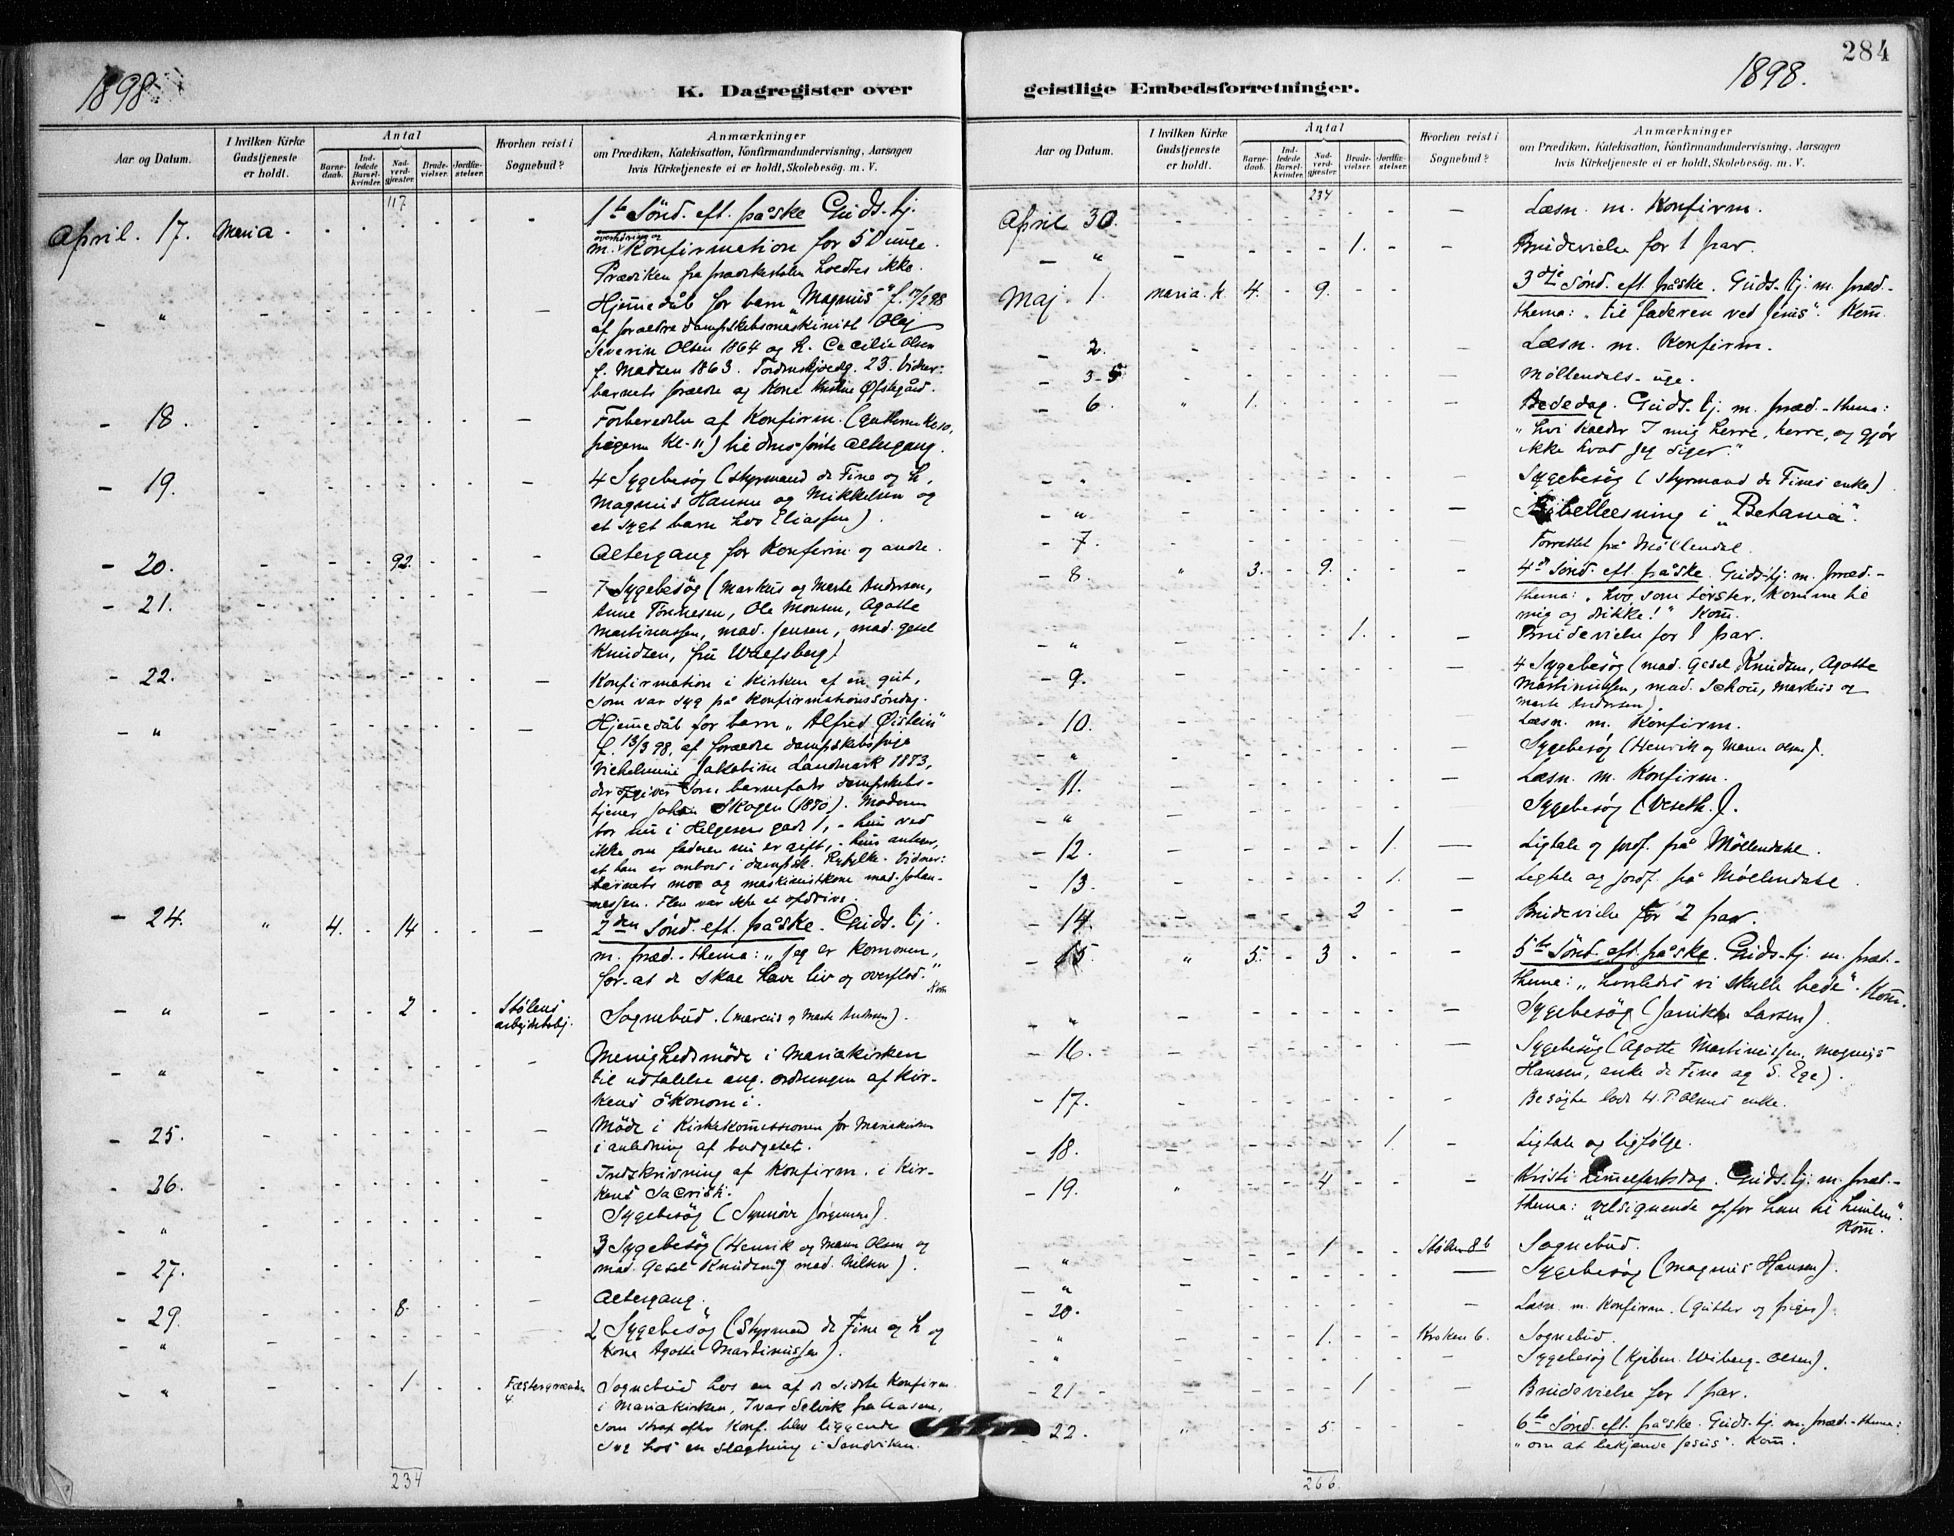 284
1898
1898.
K. Dagregister over
geistlige Embedsforretninger.
Aar og Datum.
I hvilken Kirke Gudstjeneste er holdt.
Antal
Barnedaab.
Indledede Barselkvinder.
Nadverdgjæster.
Brudevielser.
Jordfæstelser.
Hvorhen reist i Sognebud?
Anmærkninger
om Prædiken, Katekisation, Konfirmandundervisning, Aarsagen
hvis Kirketjeneste ei er holdt, Skolebesøg. m. V.
117
April. 17. Maria - 1te Sønd. eft. påske Guds. tj.
overhøring og
m. Konfirmation for 50 unge.
Prædiken fra prædikestolen holdtes ikke.
- " Hjemmedåb for barn "Magnus" f. 17/2 98
af forældre dampskibsmaskinist Olaf
Severin Olsen 1864 og h. Cecilie Olsen
f. Madsen 1863. Tordenskjoldsg. 23. Vidner:
barnets forældre og Kone
- 18. Forberedelse af Konfirm.
pigerne Kl. 11) til deres første altergang.
- 19. 4 Sygebesøg (styrmand de Fine og h,
Magnus Hansen og Mikkelsen og
et sygt barn hos Eliassen).
- 20. 92. Altergang for Konfirm og andre.
- 21. 7 Sygebesøg (Markus og Marte Andersen,
Anne Tønnesen, Ole Monsen, Agotte
Martinussen, mad. Jensen, mad. Gesel
Knudsen, fru Walfsberg)
- 22. Konfirmation i Kirken af en gut,
som var syg på Konfirmationssøndag.
- " Hjemmedåb for barn "Alfred Øistein"
f. 13/3 98, af forældre dampskibspige
Vilhelmine Jakobine Landmark 1873,
der opgiver som barnefader dampskibs-
tjener Johan Skogen (1870). Moderen
bor nu i Helgesens gade 1, - hun ved
ikke om faderen nu er gift, - hun antar,
at han er ombord i dampsk. Vidner:
barnets mor og maskinistkone mad. Johan-
nessen. Hun var ikke et opdrivs.
- 24. " 4. 14 2den Sønd. eft. påske. Guds. tj.
m. præd. - thema: "Jeg er kommen,
for at de skal have liv og overflod."
Kom
- " 2 Stølens arbejderbolj. Sognebud. (Marcus og Marte Andersen).
- " Menighedsmøde i Mariakirken
til udtalelse ang. ordningen af Kir-
kens økonomi.
- 25. Møde i Kirkekommissionen for Mariakirken
i anledning af budgettet.
- 26. Indskrivning af Konfirm. i Kir-
kens Sacristi.
- " Sygebesøg (Synnøve Jørgensen).
- 27. 3 Sygebesøg (Henrik og Maren Olsen og
mad. Gesel Knudsen mad. Nilsen).
- 29. 8. Altergang.
- " 2 Sygebesøg (Styrmand de Fine og h og
Kone Agotte Martinussen).
- " 1 4 Sognebud hos en af de sidste Konfirm.
i Mariakirken, Ivar Selvik fra Aasen,
som strax efter Konf. blev liggende
syg hos en slægtning i Sandviken.
234
Aar og Datum.
I hvilken Kirke Gudstjeneste er holdt.
Antal
Barnedaab.
Indledede Barselkvinder.
Nadverdgjæster.
Brudevielser.
Jordfæstelser.
Hvorhen reist i Sognebud?
Anmærkninger
om Prædiken, Katekisation, Konfirmandundervisning, Aarsagen
hvis Kirketjeneste ei er holdt, Skolebesøg. m. V.
234
April 30. Læsn. m. Konfirm.
- " 1. Brudevielse for 1 par.
Maj. 1. Maria. k. 4. 9. 3dje Sønd. eft. påske. Guds. tj. m. præd.-
thema: "til faderen ved Jesus". Kom.
- 2. Læsn. m. Konfirm.
- 3-5 Møllendals-uge.
- 6. " 1. Bededag. Guds. tj. m. præd.-thema:
"hvi kalder I mig herre, herre, og gjør
ikke hvad jeg siger."
- " Sygebesøg (Styrmand de Fines enke)
- " Bibellæsning i "Betania".
- 7. Forrettet på Møllendal.
- 8. " 3. 9. 4de Sønd. eft. påske. Guds. tj. m. præd.-
thema: "hvo, som tørster, komme til
mig og drikke!" Kom.
- " 1. Brudevielse for 1 par.
- 9. 4 Sygebesøg (mad. Gesel Knudsen, Agotte
Martinussen, mad. Schou, Markus og
Marte Andersen).
- 10. Læsn. m. Konfirm.
- " Sygebesøg (Henrik og Maren Olsen).
- 11. Læsn. m. Konfirm.
- " Sygebesøg (Veseth.).
- 12. 1. Ligtale og jordf. på Møllendal.
- 13. 1. Ligtale og jordf. på Møllendal.
- 14. 2 Brudevielse for 2 par.
- 15. " 5. 3 5te Sønd. eft. påske. Guds. tj. m. præd.-
thema: "hvorledes vi skulle bede". Kom.
- " Sygebesøg (Janikke Larsen).
- 16. Sygebesøg (Agotte Martinussen, Magnus
Hansen, enke de Fine og S. Ege).
- 17. Besøgte lods H. P. Olsens enke.
- 18. 1. Ligtale og ligfølge.
- 19. " 4 Kristi himmelfartsdag. Guds. tj. m. præd.-
thema: "velsignende opfor han til himlen".
Kom.
- " 1 Stølen 8b Sognebud.
- " Sygebesøg (Magnus Hansen).
- 20. Læsn. m. Konfirm. (gutter og piger).
- " 1. Kroken 6. Sognebud.
- " Sygebesøg (Kjøbm. Wiberg-Olsen).
- 21 1 Brudevielse for 1 par.
- 22. " 5. 6te Sønd. eft. påske. Guds. tj. m. præd.-thema:
"om at bekjende Jesus". Kom.
266